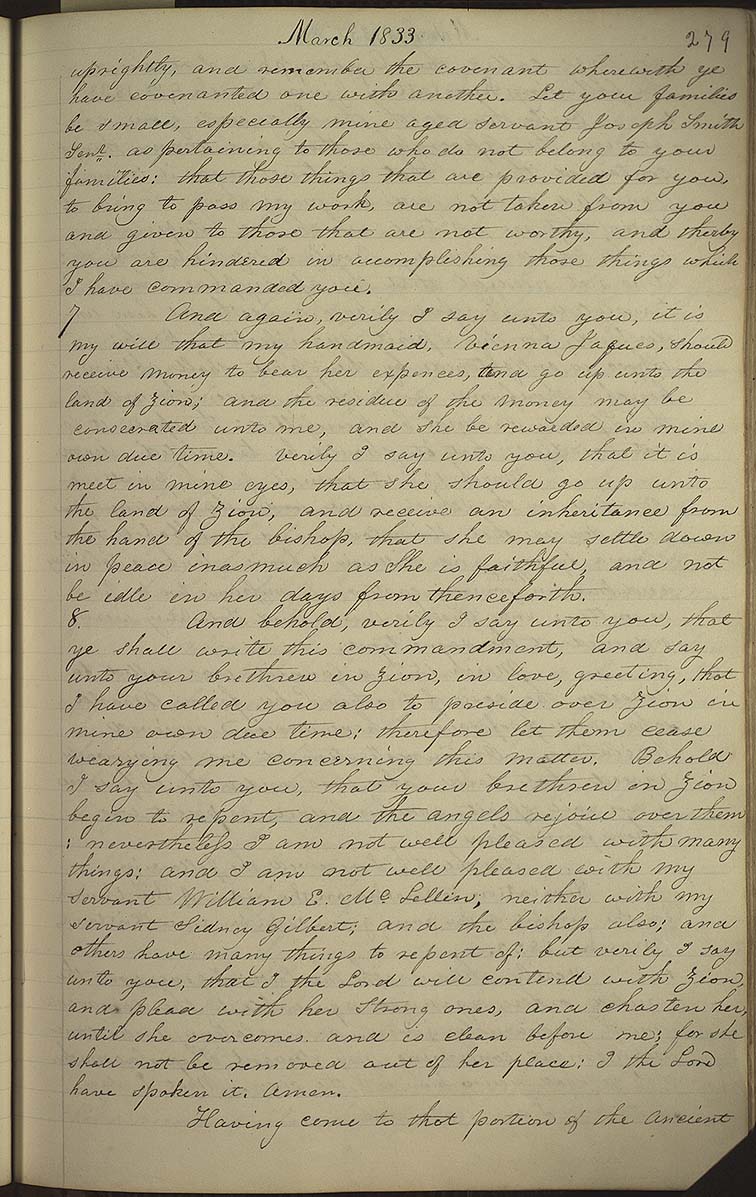 March 1833.
279
uprightly, and remember the covenant wherewith ye
have covenanted one with another. Let your families
be small, especially mine aged servant Joseph Smith
Senr. as pertaining to those who do not belong to your
families: that those things that are provided for you,
to bring to pass my work, are not taken from you
and given to those that are not worthy, and therby
you are hindered in accomplishing those things which
I have commanded you.
7 And again, verily I say unto you, it is
my will that my handmaid, Vienna Jaques, should
receive money to bear her expences, and go up unto the
land of Zion; and the residue of the money may be
consecrated unto me, and she be rewarded in mine
own due time. Verily I say unto you, that it is
meet in mine eyes, that she should go up unto
the land of Zion, and receive an inheritance from
the hand of the bishop, that she may settle down
in peace inasmuch as she is faithful, and not
be idle in her days from thenceforth.
8. And behold, verily I say unto you, that
ye shall write this commandment, and say
unto your brethren in Zion, in love, greeting, that
I have called you also to preside over Zion in
mine own due time: therefore let them cease
wearying me concerning this matter. Behold
I say unto you, that your brethren in Zion
begin to repent, and the angels rejoice over them
; nevertheless I am not well pleased with many
things; and I am not well pleased with my
servant William E. Mc Lellin, neither with my
servant Sidney Gilbert; and the bishop also; and
others have many things to repent of: but verily I say
unto you, that I the Lord will contend with Zion,
and plead with her strong ones, and chasten her,
until she overcomes and is clean before me; for she
shall not be removed out of her place: I the Lord
have spoken it. Amen.
Having come to that portion of the ancient